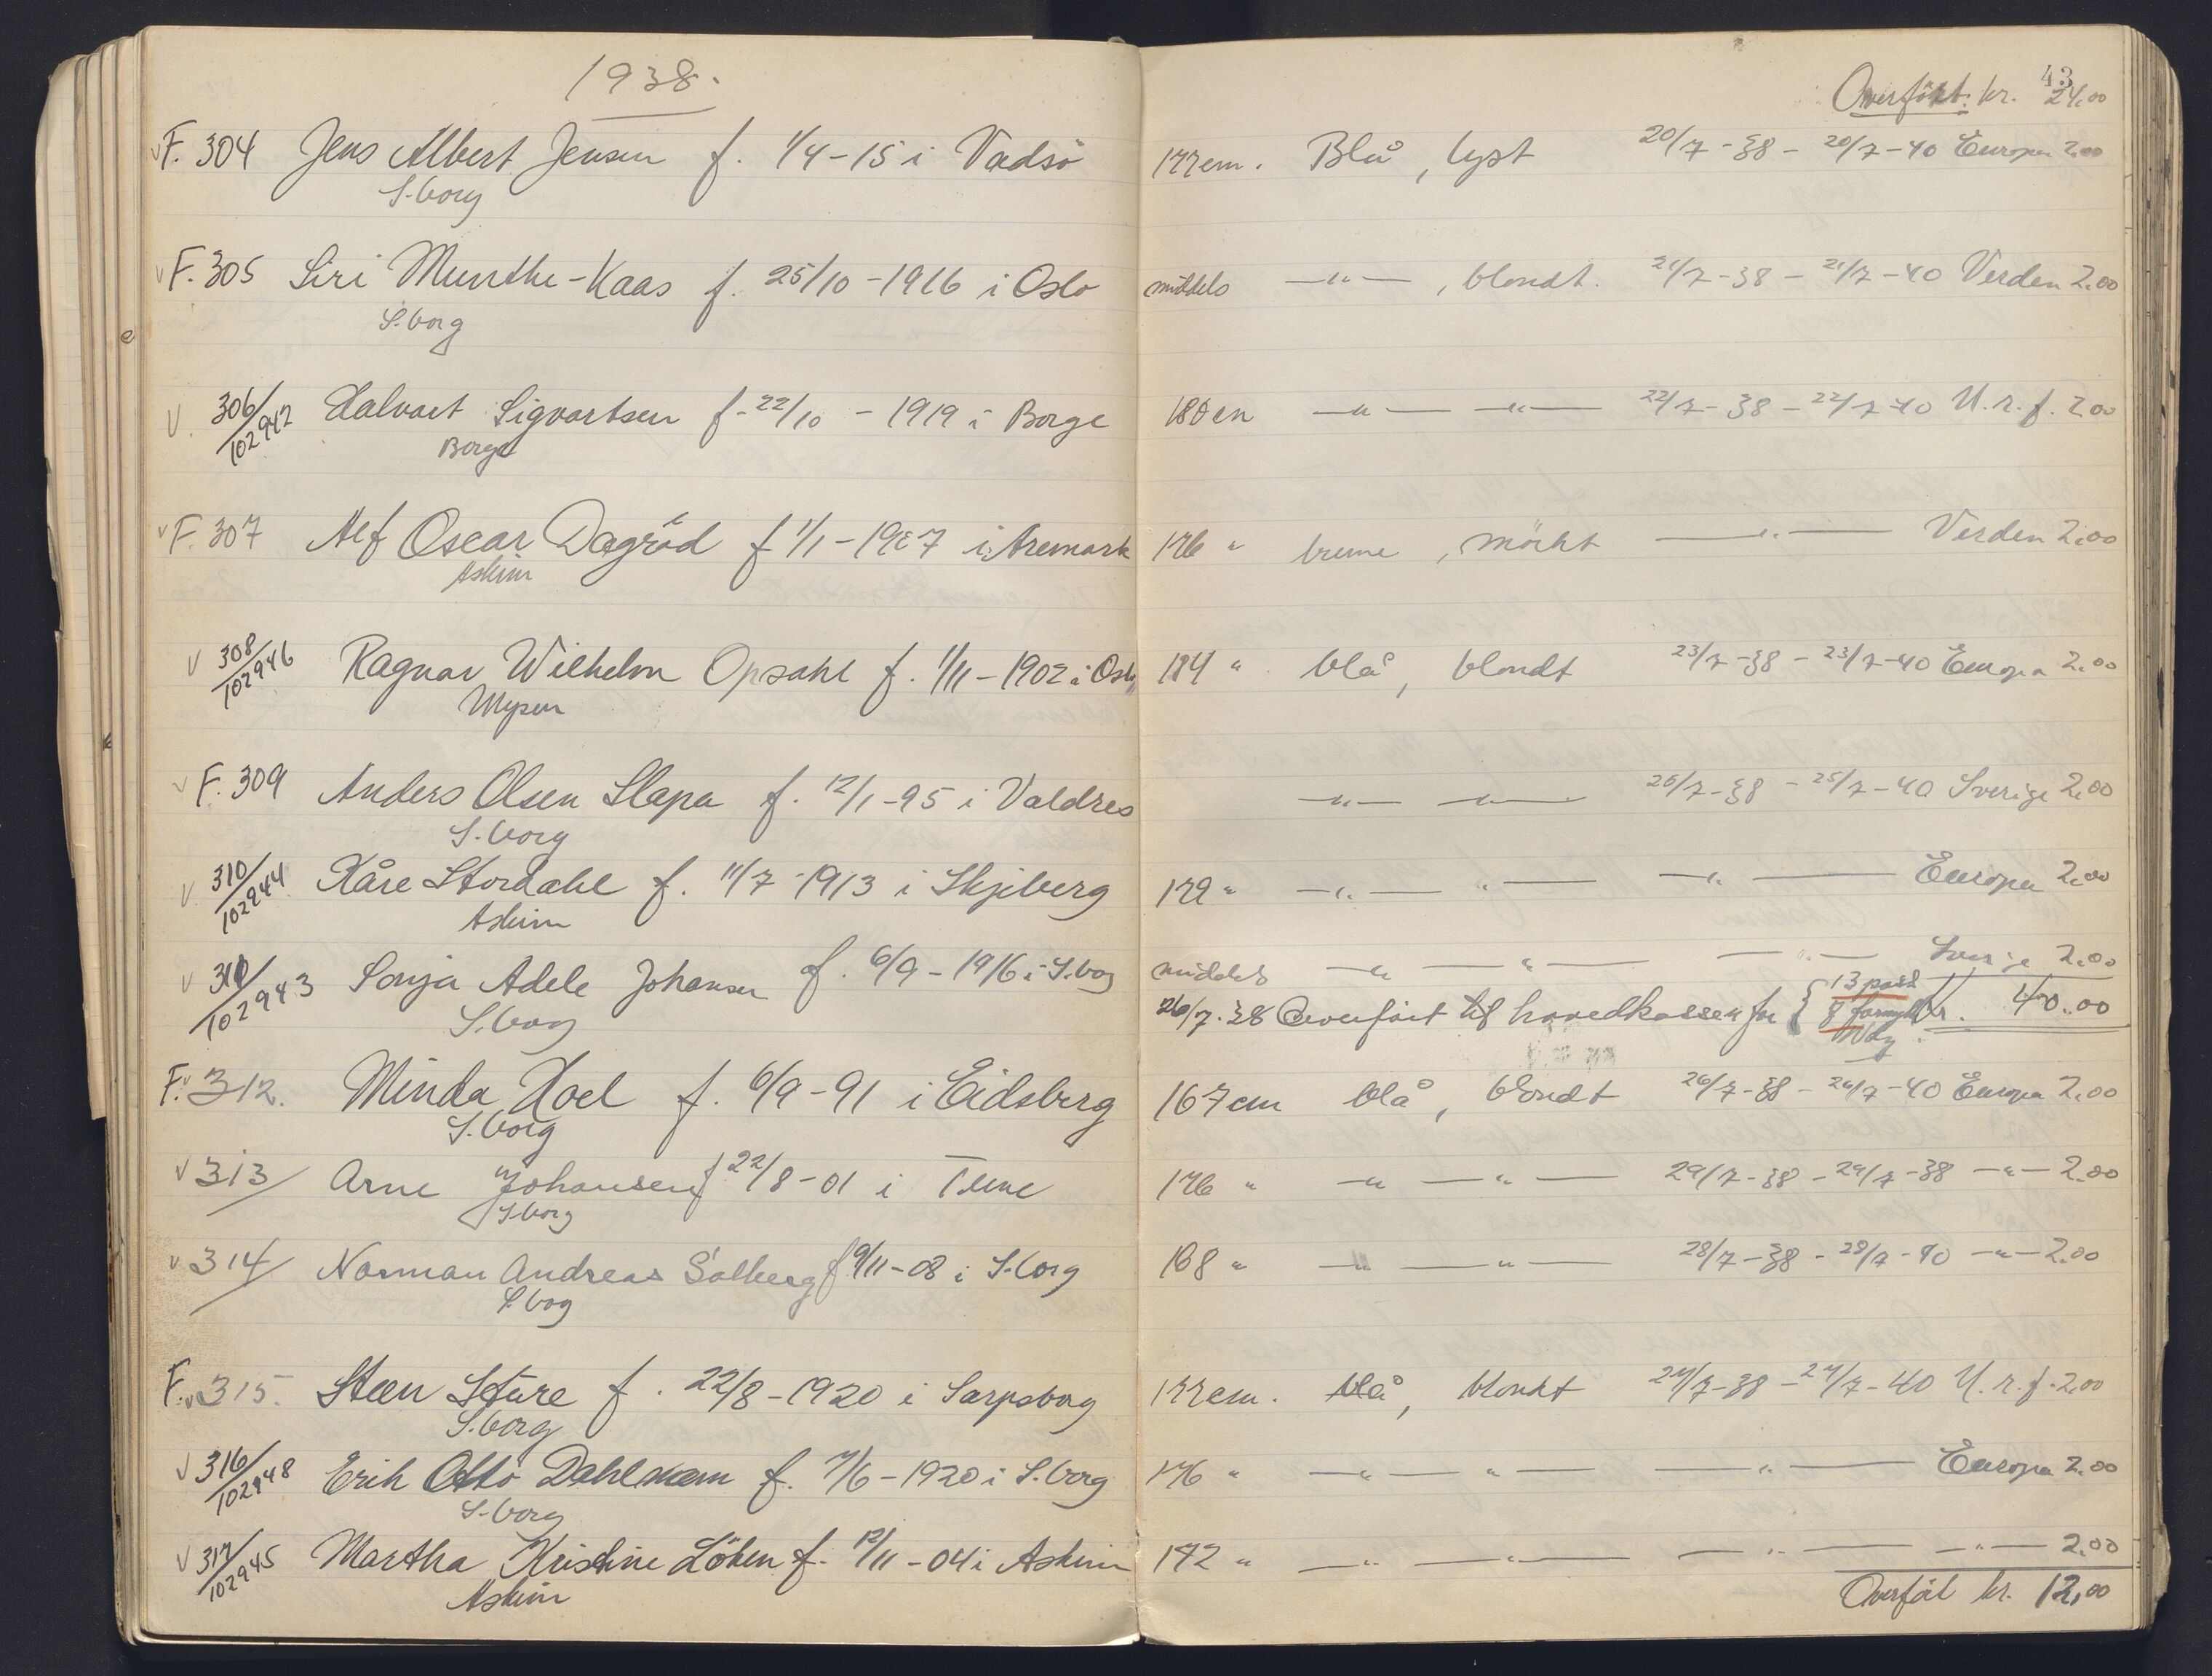 1938.
43
Overført: kr. 24,00
F. 304 Jens Albert Jensen f. 1/4-15 i Vadsö 177 cm. Blå, lyst 20/7-38 - 20/7-40 Europa 2,00
S.borg
F. 305 Siri Munthe-Kaas f. 25/10-1916 i Oslo middels -"-, blondt. 21/7-38 - 21/7-40 Verden 2,00
S.borg
306/102942 Halvart Sigvartsen f. 22/10 - 1919 i Borge 180 cm -"- -"- 22/7-38 - 22/7-40 U.r.f. 2,00
Borge
F. 307 Alf Oscar Dagröd f 1/1-1907 i Aremark 176 " brune, mörkt -"- Verden 2,00
Askim
308/102946 Ragnar Wilhelm Opsahl f. 1/11-1902 i Oslo 184 " blå, blondt 23/7-38 - 23/7-40 Europa 2,00
Mysen
F. 309 Anders Olsen Slapa f. 12/1-95 i Valdres -"- -"- 25/7-38 - 25/7-40 Sverige 2,00
S.borg
310/102944 Kåre Stordahl f. 11/7-1913 i Skjeberg 179 " -"- -"- -"- Europa 2,00
Askim
311/102943 Sonja Adele Johansen f. 6/9-1916 i S.borg middels -"- -"- -"- Sverige 2,00
S.borg
26/7-38 Overført til hovedkassen for { 13 pass 7 fornyelser kr. 40.00
F. 312. Minda Hoel f. 6/9-91 i Eidsberg 167 cm blå, blondt 26/7-38 - 26/7-40 Europa 2,00
S.borg
313/ Arne Johansen f 22/8-01 i Tune 176 " -"- -"- 29/7-38 - 29/7-38 -"- 2,00
S.borg
314/ Norman Andreas Solberg f 9/11-08 i S.borg 168 " -"- -"- 28/7-38 - 28/7-40 -"- 2,00
S.borg
F. 315. Steen Sture f. 22/8-1920 i Sarpsborg 177 cm. blå, blondt 27/7-38 - 27/7-40 U.r.f. 2,00
S.borg
316/102948 Erik Otto Dahlmann f. 7/6-1920 i S.borg 176 " -"- -"- -"- Europa 2,00
S.borg
317/102945 Martha Kristine Löken f. 12/11-04 i Askim 172 " -"- -"- -"- -"- 2,00
Askim
Overført kr. 12,00